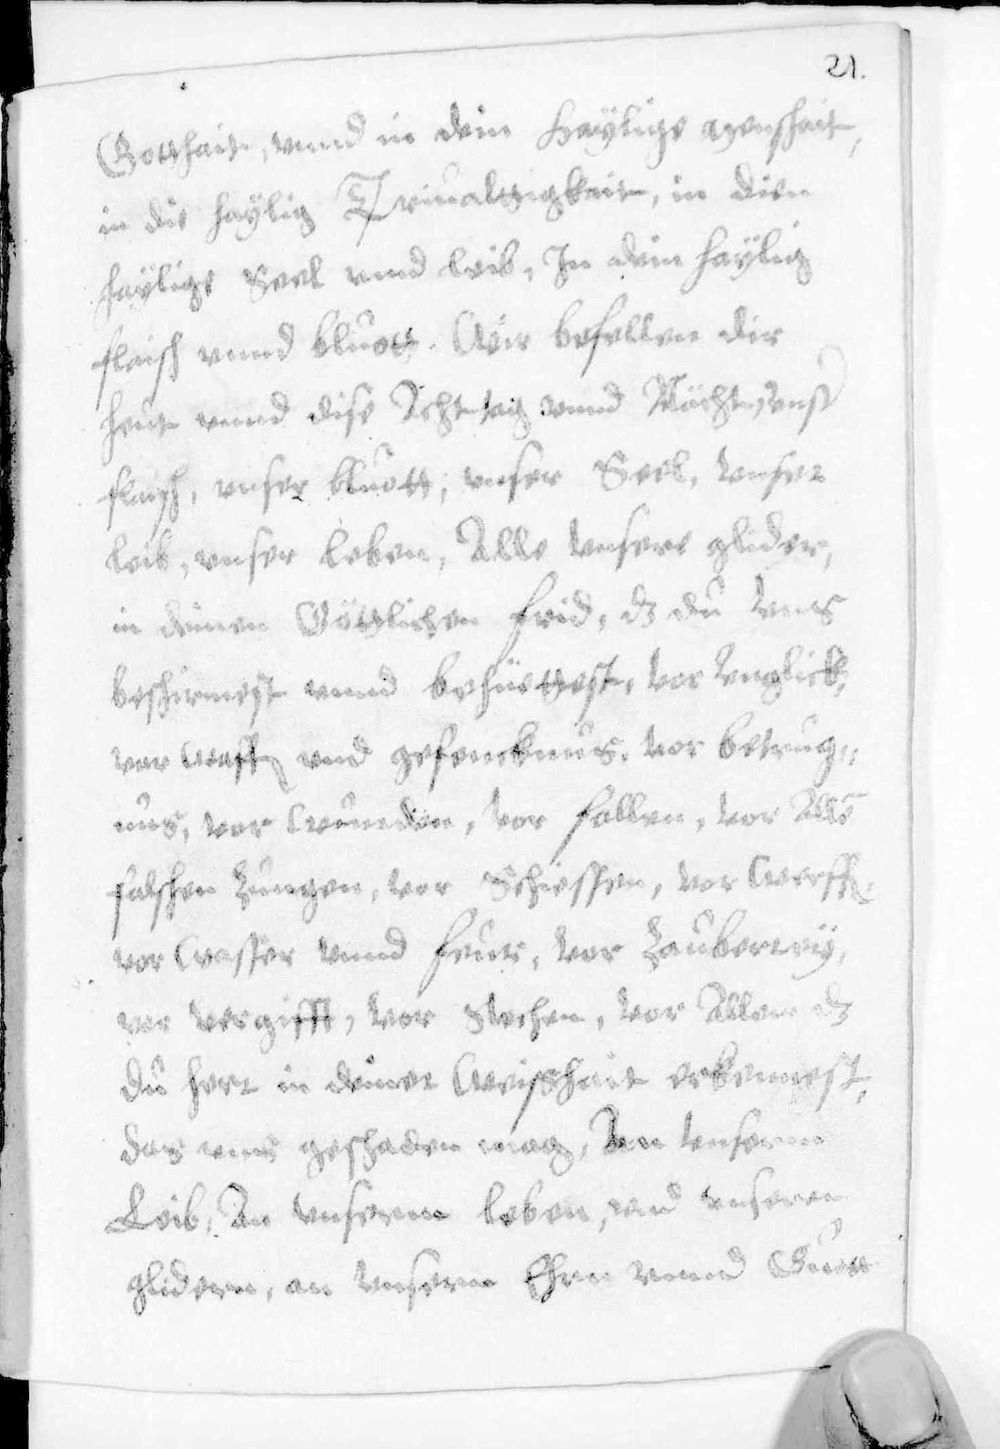 21.
Gotthait, vnnd in dein Haÿlige menschait,
in die haÿlig Triualtigkait, in dien
haÿlige Seel vnnd leib, In dein haÿlig
flaisch vnnd bluott. Wir befellen dir
heut vnnd dise Acht tag vnnd Nächt, vnser
flaisch, vnser bluott, vnser Seel, vnser
leib, vnser leben, Alle vnsere glider,
in deinen Göttlichen frid, dz du vns
beschirmest vnnd behüettest, vor vnglick,
vor waffen vnd gefencknus, vor betrug„
nus, vor wunden, vor fallen, vor Alle
falschen Zungen, vor Schiessen, vor werffen
vor wasser vnnd feur, vor Zauberrey,
vor vergifft, vor Stechen, vor Allem dz
du herr in deiner weisshait erkennest,
das vns geschaden mag, An vnserm
Leib, An vnserm leben, vnd vnseren
glidern, an vnserm Ehren vnnd Guott